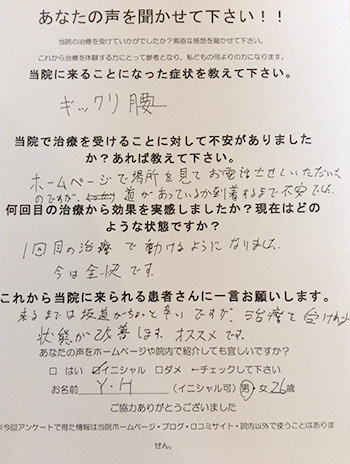 あなたの声を聞かせて下さい！！
当院の治療を受けていかがでしたか？素直な感想を聞かせて下さい。
これから治療を体験する方にとって参考となり、私どもの何よりの力になります。
当院に来ることになった症状を教えて下さい。
ギックリ腰
当院で治療を受けることに対して不安がありました
か？あれば教えて下さい。
ホームページで場所を見てお電話させていただいた
のですが、道があっているか到着するまで不安でした。
何回目の治療から効果を実感しましたか？現在はどの
ような状態ですか？
1回目の治療で動けるようになりました。
今は全快です。
これから当院に来られる患者さんに一言お願いします。
来るまでは坂道がちょっと辛いですが、治療を受ければ
状態が改善します。オススメです。
あなたの声をホームページや院内で紹介しても宜しいですか？
□ はい ☑イニシャル □ダメ ←チェックして下さい
お名前 Y・H （イニシャル可） 男・女 26歳
ご協力ありがとうございました
※今回アンケートで得た情報は当院ホームページ・ブログ・ロコミサイト・院内以外で使うことはありま
せん。